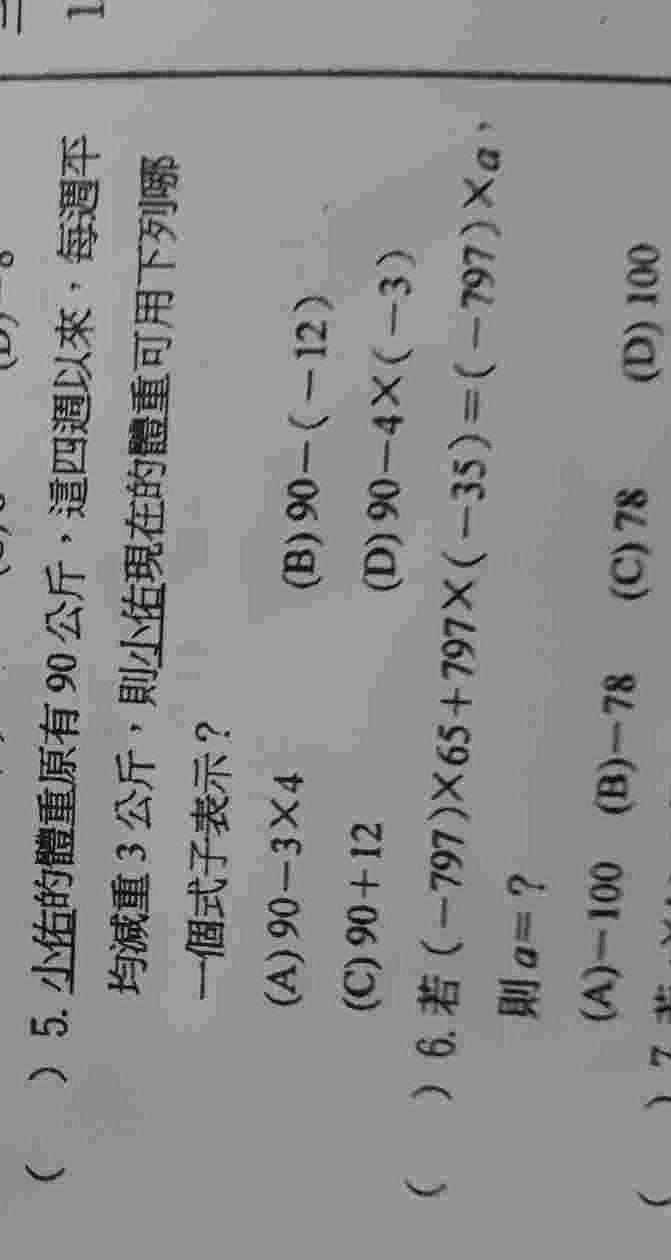 (　) 5. 小佑的體重原有 90 公斤，這四週以來，每週平
均減重 3 公斤，則小佑現在的體重可用下列哪
一個式子表示？
(A) 90－3×4　(B) 90－(－12)
(C) 90＋12　(D) 90－4×(－3)
(　) 6. 若 (－797)×65＋797×(－35)＝(－797)×a，
則 a＝？
(A)－100　(B)－78　(C) 78　(D) 100
(　) 7